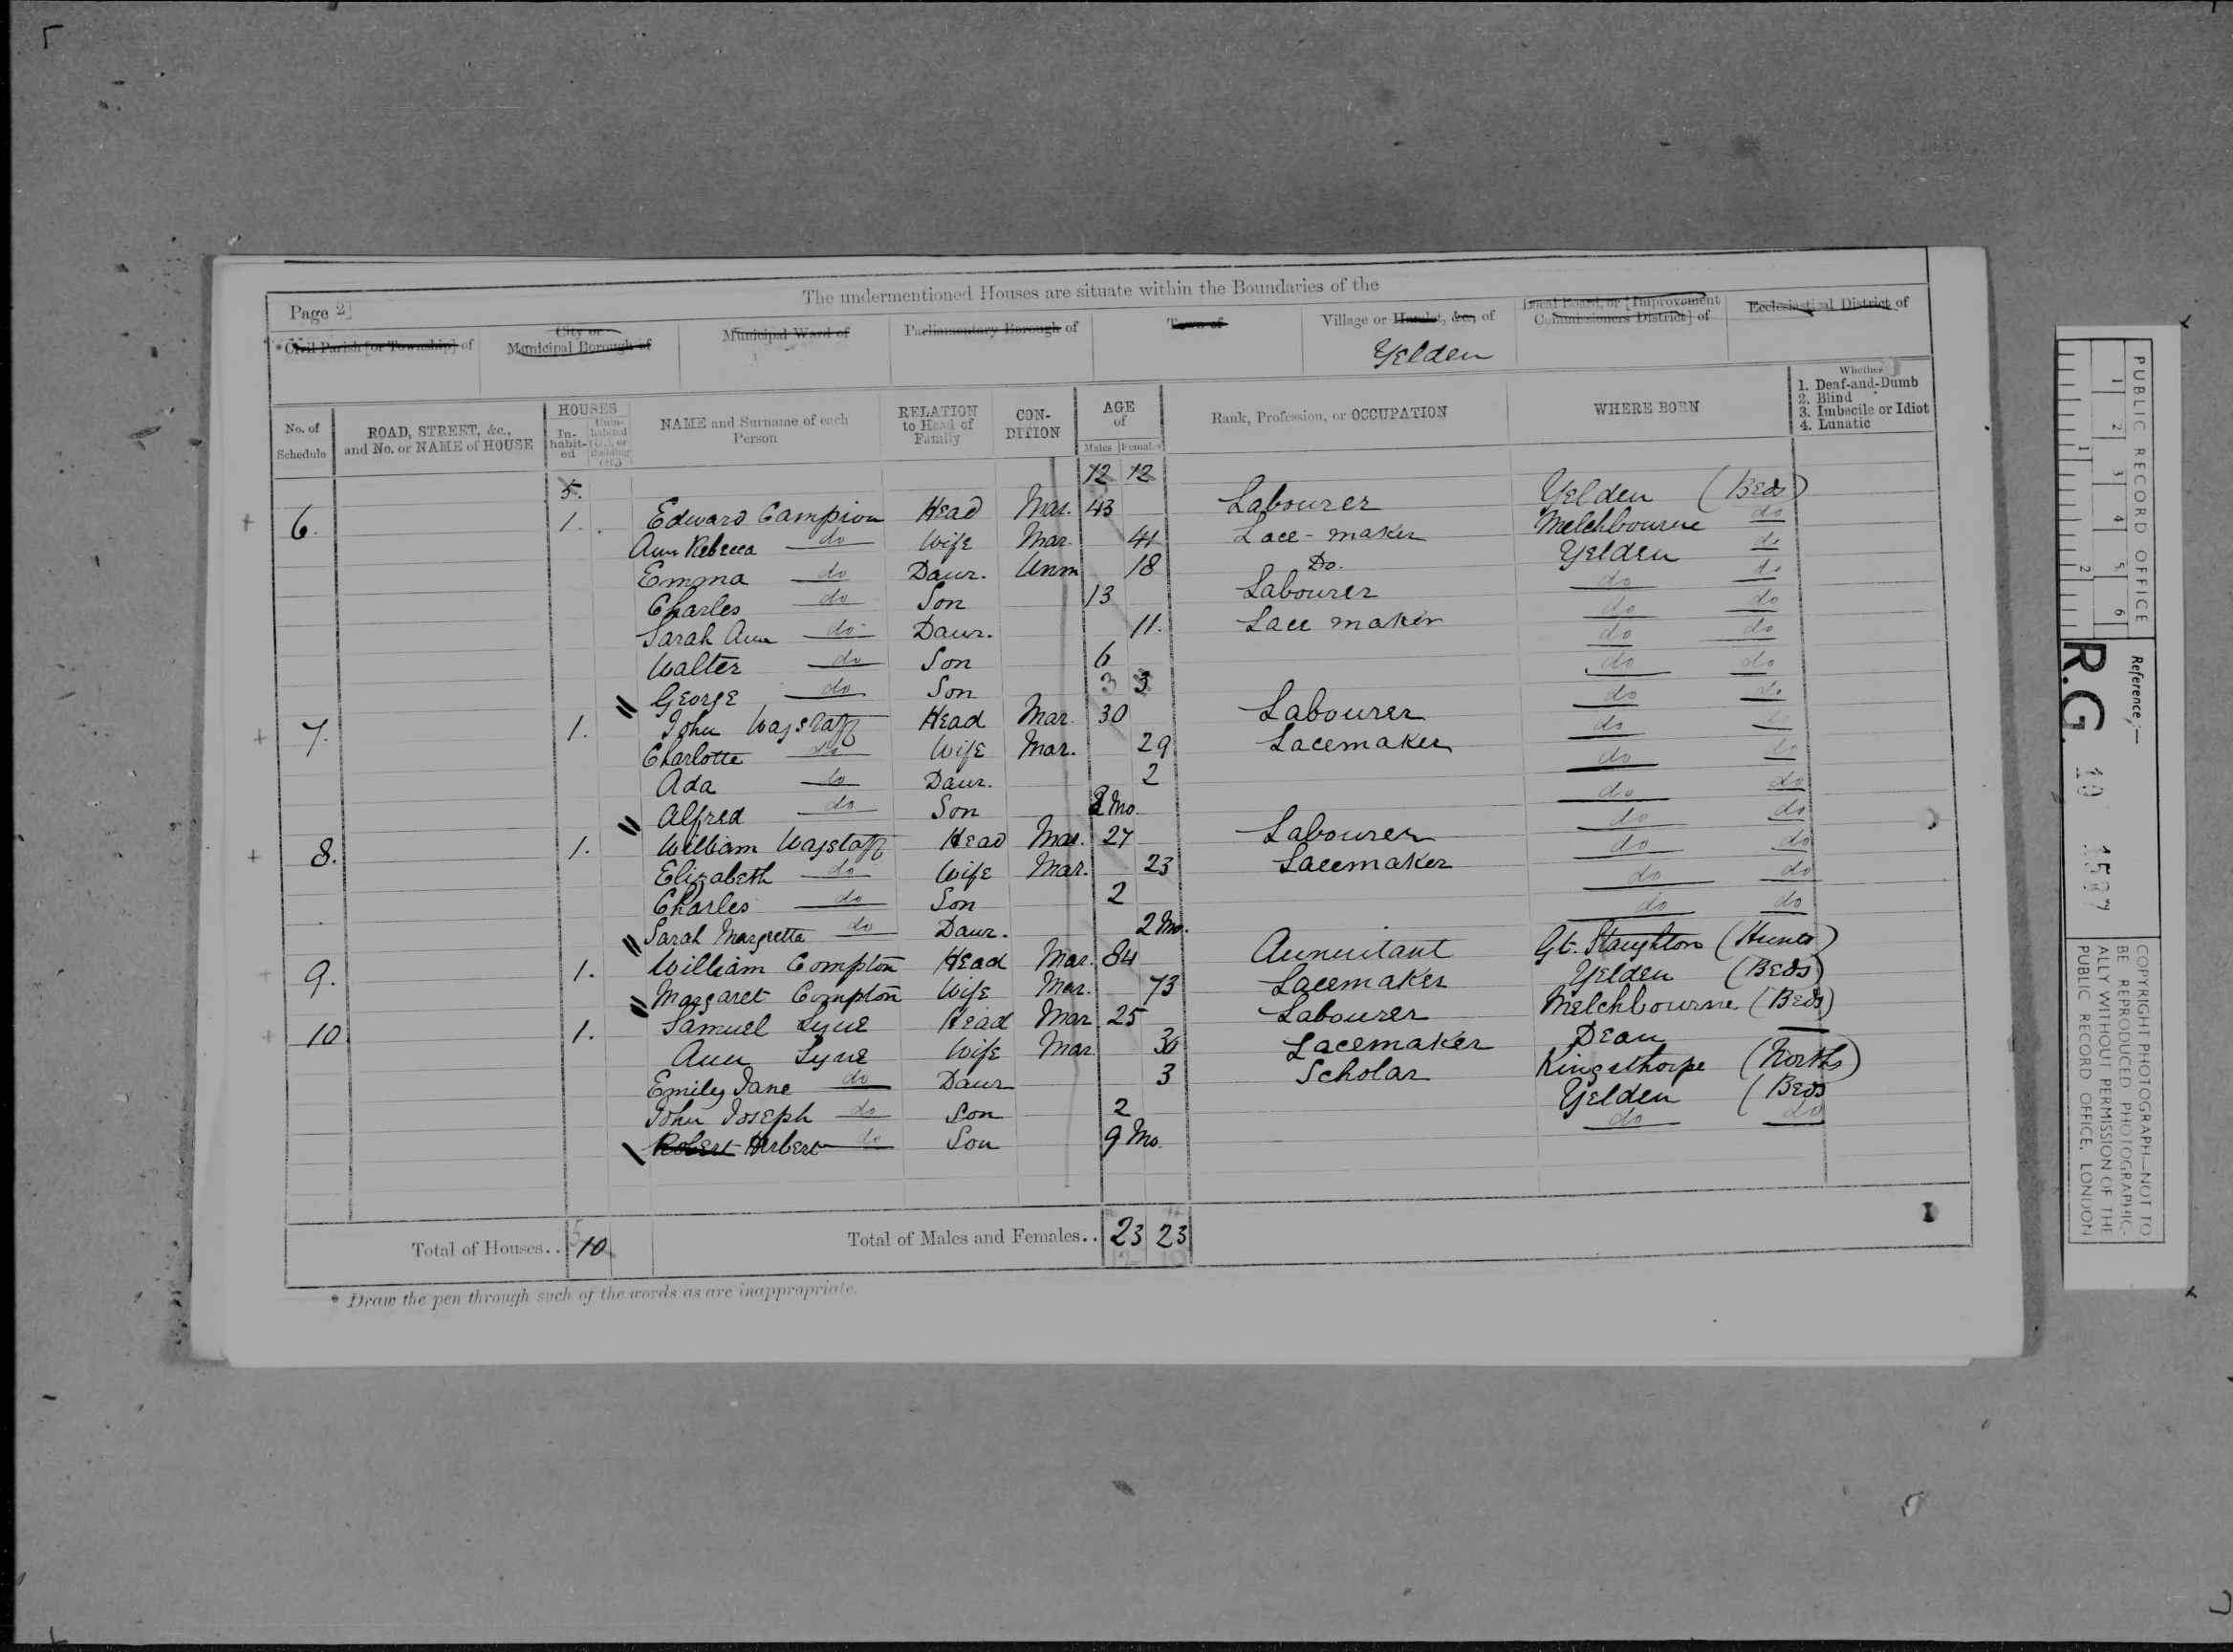 The undermentioned Houses are situate within the Boundaries of the
Page 2]
*Civil Parish [or Township] of
City or Municipal Borough of
Municipal Ward of
Parliamentary Borough of
Town of
Village or Hamlet, &c., of
Yelden
Local Board, or [Improvement Commissioners District] of
Ecclesiastical District of
No. of Schedule
ROAD, STREET, &c., and No. or NAME of HOUSE
HOUSES
In-habit-ed
NAME and Surname of each Person
RELATION to Head of Family
CON-DITION
AGE of
Males Females
Rank, Profession, or OCCUPATION
WHERE BORN
Whether
1. Deaf-and-Dumb
2. Blind
3. Imbecile or Idiot
4. Lunatic
5. 12 12
6. 1. Edward Campion Head Mar. 43 Labourer Yelden (Beds)
Ann Rebecca do Wife Mar. 41 Lace-maker Melchbourne do
Emma do Daur. Unm 18 Do. Yelden do
Charles do Son 13 Labourer do do
Sarah Ann do Daur. 11. Lace maker do do
Walter do Son 6 do do
George do Son 3 3 do do
7. 1. John Wagstaff Head Mar. 30 Labourer do do
Charlotte do Wife Mar. 29 Lacemaker do do
Ada do Daur. 2 do do
Alfred do Son Mo. do do
8. 1. William Wagstaff Head Mar. 27 Labourer do do
Elizabeth do Wife Mar. 23 Lacemaker do do
Charles do Son 2 do do
Sarah Margretta do Daur. 2 Mo. do do
9. 1. William Compton Head Mar. 84 Annuitant Gt. Staughton (Hunts)
Margaret Compton Wife Mar. 73 Lacemaker Yelden (Beds)
10 1. Samuel Lyne Head Mar 25 Labourer Melchbourne (Beds)
Ann Lyne Wife Mar. 30 Lacemaker Dean
Emily Jane do Daur 3 Scholar Kingsthorpe (Norths)
John Joseph do Son 2 Yelden (Beds
Robert Herbert do Son 9 Mo. do do
Total of Houses.. 10
Total of Males and Females.. 23 23
* Draw the pen through such of the words as are inappropriate.
PUBLIC RECORD OFFICE
1 2 3 4 5 6
1 2
Reference:—
R.G. 10 1587
COPYRIGHT PHOTOGRAPH—NOT TO
BE REPRODUCED PHOTOGRAPHIC-
ALLY WITHOUT PERMISSION OF THE
PUBLIC RECORD OFFICE, LONDON